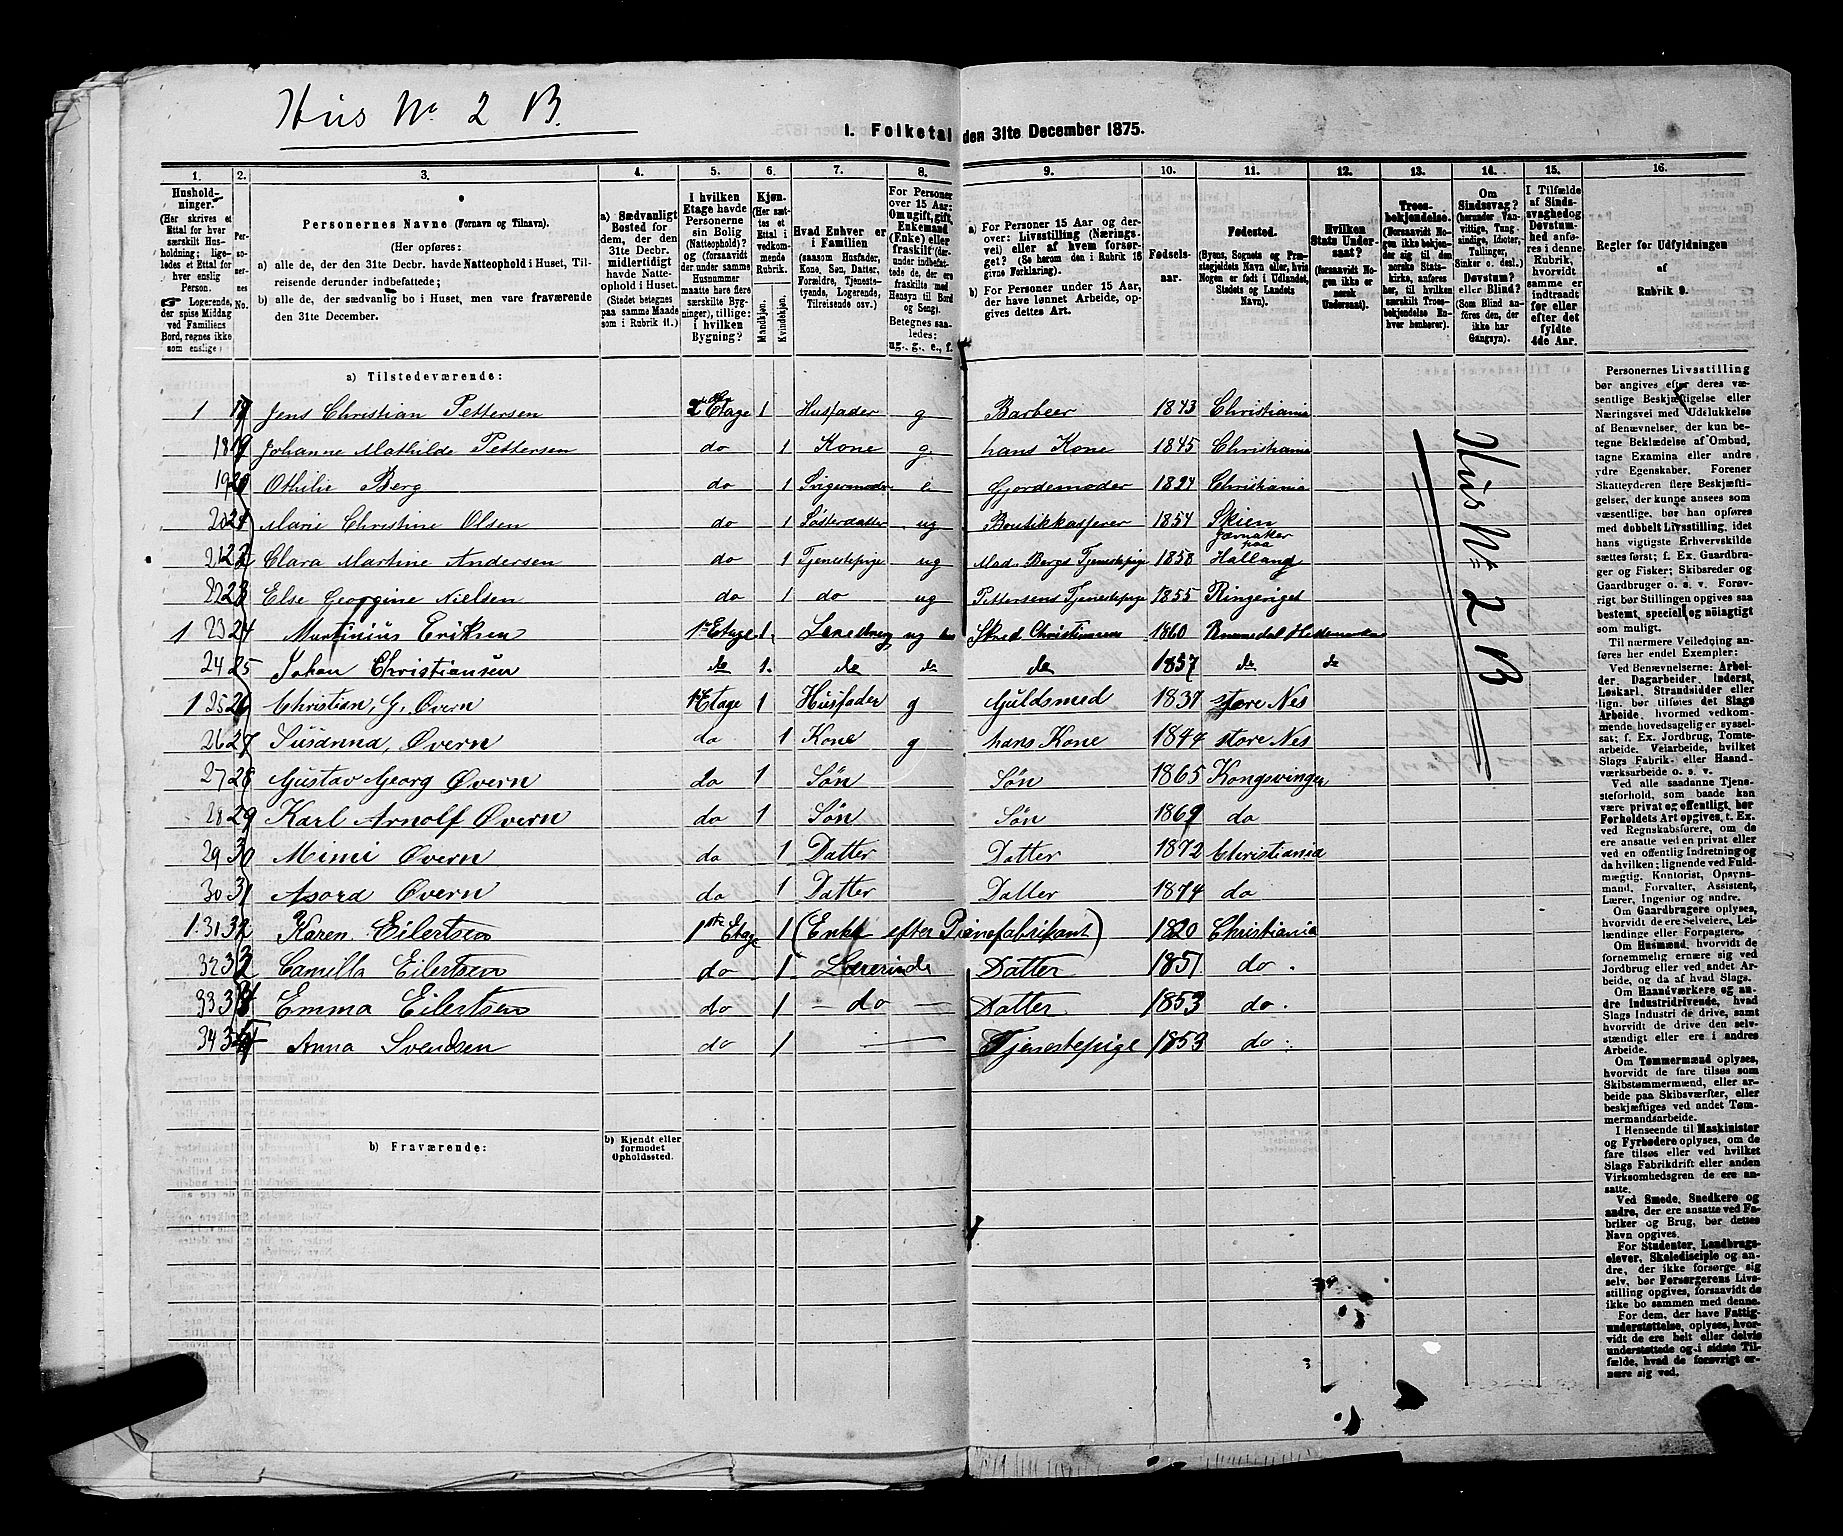 Hus No 2 B.
I. Folketal den 31te December 1875.
1. 2. 3. 4. 5. 6. 7. 8. 9. 10. 11. 12. 13. 14. 15. 16.
Husholdninger. (Her skrives et Ettal for hver særskilt Husholdning; ligeledes et Ettal for enslig Person. Logerende, der spise Middag ved Familiens Bord, regnes ikke som enslige).
Personernes No.
Personernes Navne (Fornavn og Tilnavn).
(Her opføres:
a) alle de, der den 31te Decbr. havde Natteophold i Huset, Tilreisende derunder indbefattede;
b) alle de, der sædvanlig bo i Huset, men vare fraværende den 31te December.
a) Sædvanligt Bosted for dem, der den 31te Decbr. midlertidigt havde Natteophold i Huset. (Stedet betegnes paa samme Maade som i Rubrik 11.)
I hvilken Etage havde Personerne sin Bolig (Natteophold)? og (forsaavidt der under samme Husnummer maatte høre flere særskilte Bygninger), tillige: i hvilken Bygning?
Kjøn. (Her sættes et Ettal i vedkommende Rubrik. Mandkjøn. Kvindekjøn.
Hvad Enhver er i Familien (saasom Husfader, Kone, Søn, Datter, Forældre, Tjenestetyende, Logerende, Tilreisende osv.)
For Personer over 15 Aar: Om ugift, gift, Enkemand (Enke) eller fraskilt (derunder indbefattede de, der ere fraskilte med Hensyn til Bord og Seng). Betegnes saaledes: ug., g., e., f.
a) For Personer 15 Aar og derover: Livsstilling (Næringsvei) eller af hvem forsørget? (Se herom den i Rubrik 16 givne Forklaring).
b) For Personer under 15 Aar, der have lønnet Arbeide, opgives dettes Art.
Fødselsaar.
Fødested. (Byens, Sognets og Præstegjeldets Navn eller, hvis Nogen er født i Udlandet, Stedets og Landets Navn).
Hvilken Stats Undersaat? (forsaavidt Nogen ikke er norsk Undersaat).
Troesbekjendelse. (Forsaavidt Nogen ikke bekjender sig til den norske Statskirke, anføres her, til hvilken særskilt Troesbekjendelse Enhver henhører).
Om Sindssvag? (herunder Vanvittige, Tungsindige, Idioter, Tullinger, Sinker o. desl.) Døvstum? eller Blind? (Som Blind anføres den, der ikke har Gangsyn).
I Tilfælde af Sindssvaghed og Døvstumhed anføres i denne Rubrik, hvorvidt samme er indtraadt før eller efter det fyldte 4de Aar.
Regler for Udfyldningen af Rubrik 9.
a) Tilstedeværende:
1 17 Jens Christian Pettersen 2 Etage 1 Husfader g Barbeer 1843 Christiania
18 Johanne Mathilde Pettersen do 1 Kone g. hans Kone 1845 Christiania
19 20 Othilie Berg do 1 e Gjordemoder 1824 Christiania
20 21 Marie Christine Olsen do 1 Søsterdatter ug 1854 Skien
Jævnaker paa
21 22 Clara Martine Andersen do 1 Tjenestepige ug Mad. Bergs Tjenestepige 1858 Halland
22 23 Else Georgine Nielsen do 1 do ug Pettersens Tjenestepige 1855 Ringeriget
1 23 24 Martinius Eriksen 1 Etage 1. ug 1860
24 25 Johan Christiansen do 1. do do do 1857 do do
1 25 26 Christian, G. Øvern 1 Etage 1 Husfader g Guldsmed 1837 store Nes
26 27 Susanna, Øvern do 1 Kone g hans Kone 1844 store Nes
27 28 Gustav Georg Øvern do 1 Søn Søn 1865 Kongsvinger
28 29 Karl Arnolf Øvern do 1 Søn Søn 1869 do
29 30 Mimi Øvern do 1 Datter Datter 1872 Christiania
30 31 Asora Øvern do 1 Datter Datter 1874 do
1. 31 32 Karen Eilertsen 1ste Etage 1 (Enke efter Pianefabrikant) 1820 Christiania
32 33 Camilla Eilertsen do 1 Lærerinde Datter 1851 do.
33 34 Emma Eilertsen do 1 — do — Datter 1853 do.
34 35 Anna Svendsen do 1 — Tjenestepige 1853 do.
b) Fraværende:
b) Kjendt eller formodet Opholdssted.
Hus No 2 B
Personernes Livsstilling
bør angives efter deres væ-
sentlige Beskjæftigelse eller
Næringsvei med Udelukkelse
af Benævnelser, der kun be-
tegne Beklædelse af Ombud,
tagne Examina eller andre
ydre Egenskaber. Forener
Skatteyderen flere Beskjæfti-
gelser, der kunne ansees som
væsentlige, bør han opføres
med dobbelt Livsstilling, idet
hans vigtigste Erhvervskilde
sættes først; f. Ex. Gaardbru-
ger og Fisker; Skibsreder og
Gaardbruger o. s. v. Forøv-
rigt bør Stillingen opgives saa
bestemt, specielt og nøiagtigt
som muligt.
Til nærmere Veiledning an-
føres her endel Exempler:
Ved Benævnelserne: Arbei-
der, Dagarbeider, Inderst,
Løskarl, Strandsidder eller
lign. bør tilføies det Slags
Arbeide, hvormed vedkom-
mende hovedsagelig er syssel-
sat; f. Ex. Jordbrug, Tomte-
arbeide, Veiarbeide, hvilket
Slags Fabrik- eller Haand-
værksarbeide o. s. v.
Ved alle saadanne Tjene-
steforhold, som baade kan
være privat og offentligt, bør
Forholdets Art opgives, t. Ex.
ved Regnskabsførere, om de
ere ansatte ved en privat eller
ved en offentlig Indretning og
da hvilken; lignende ved Fuld-
mægtig, Kontorist, Opsyns-
mand, Forvalter, Assistent,
Lærer, Ingeniør og andre.
Om Gaardbrugere oplyses,
hvorvidt de ere Selveiere, Lei-
lændinge eller Forpagtere.
Om Husmænd, hvorvidt de
fornemmelig ernære sig ved
Jordbrug eller ved andet Ar-
beide, og da af hvad Slags.
Om Haandværkere og an-
dre Industridrivende, hvad
Slags Industri de drive, samt
hvorvidt de drive den selv-
stændigt eller ere i andres
Arbeide.
Om Tømmermænd oplyses,
hvorvidt de fare tilsøs som
Skibstømmermænd, eller ar-
beide paa Skibsværfter, eller
beskjæftiges ved andet Tøm-
mermandsarbeide.
I Henseende til Maskinister
og Fyrbødere oplyses, om de
fare tilsøs eller ved hvilket
Slags Fabrikdrift eller anden
Virksomhedsgren de ere an-
satte.
Ved Smede, Snedkere og
andre, der ere ansatte ved Fa-
briker og Brug, bør dettes
Navn opgives.
For Studenter, Landbrugs-
elever, Skoledisciple og an-
dre, der ikke forsørge sig
selv, bør Forsørgerens Livs-
stilling opgives, forsaavidt de
ikke bo sammen med denne.
For dem, der have Fattig-
understøttelse, oplyses, hvor-
vidt de ere helt eller delvis
understøttede og i sidste Til-
fælde, hvad de forøvrigt er-
nære sig ved.